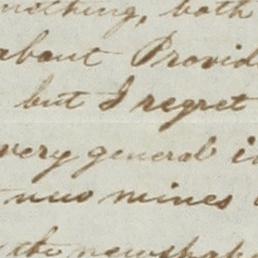 nothing, both
about Provid
but I regret
very general i
two mines
the newspape